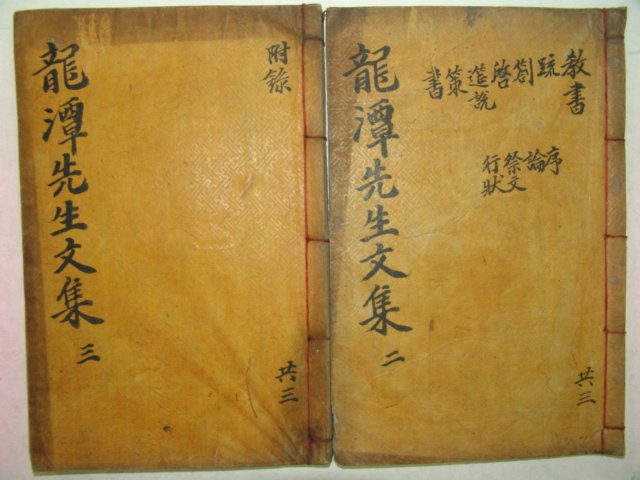 教書
疏
箚
啓
簉說
策
書
序
論
祭文
行狀
龍潭先生文集 二
共三
附錄
龍潭先生文集 三
共三